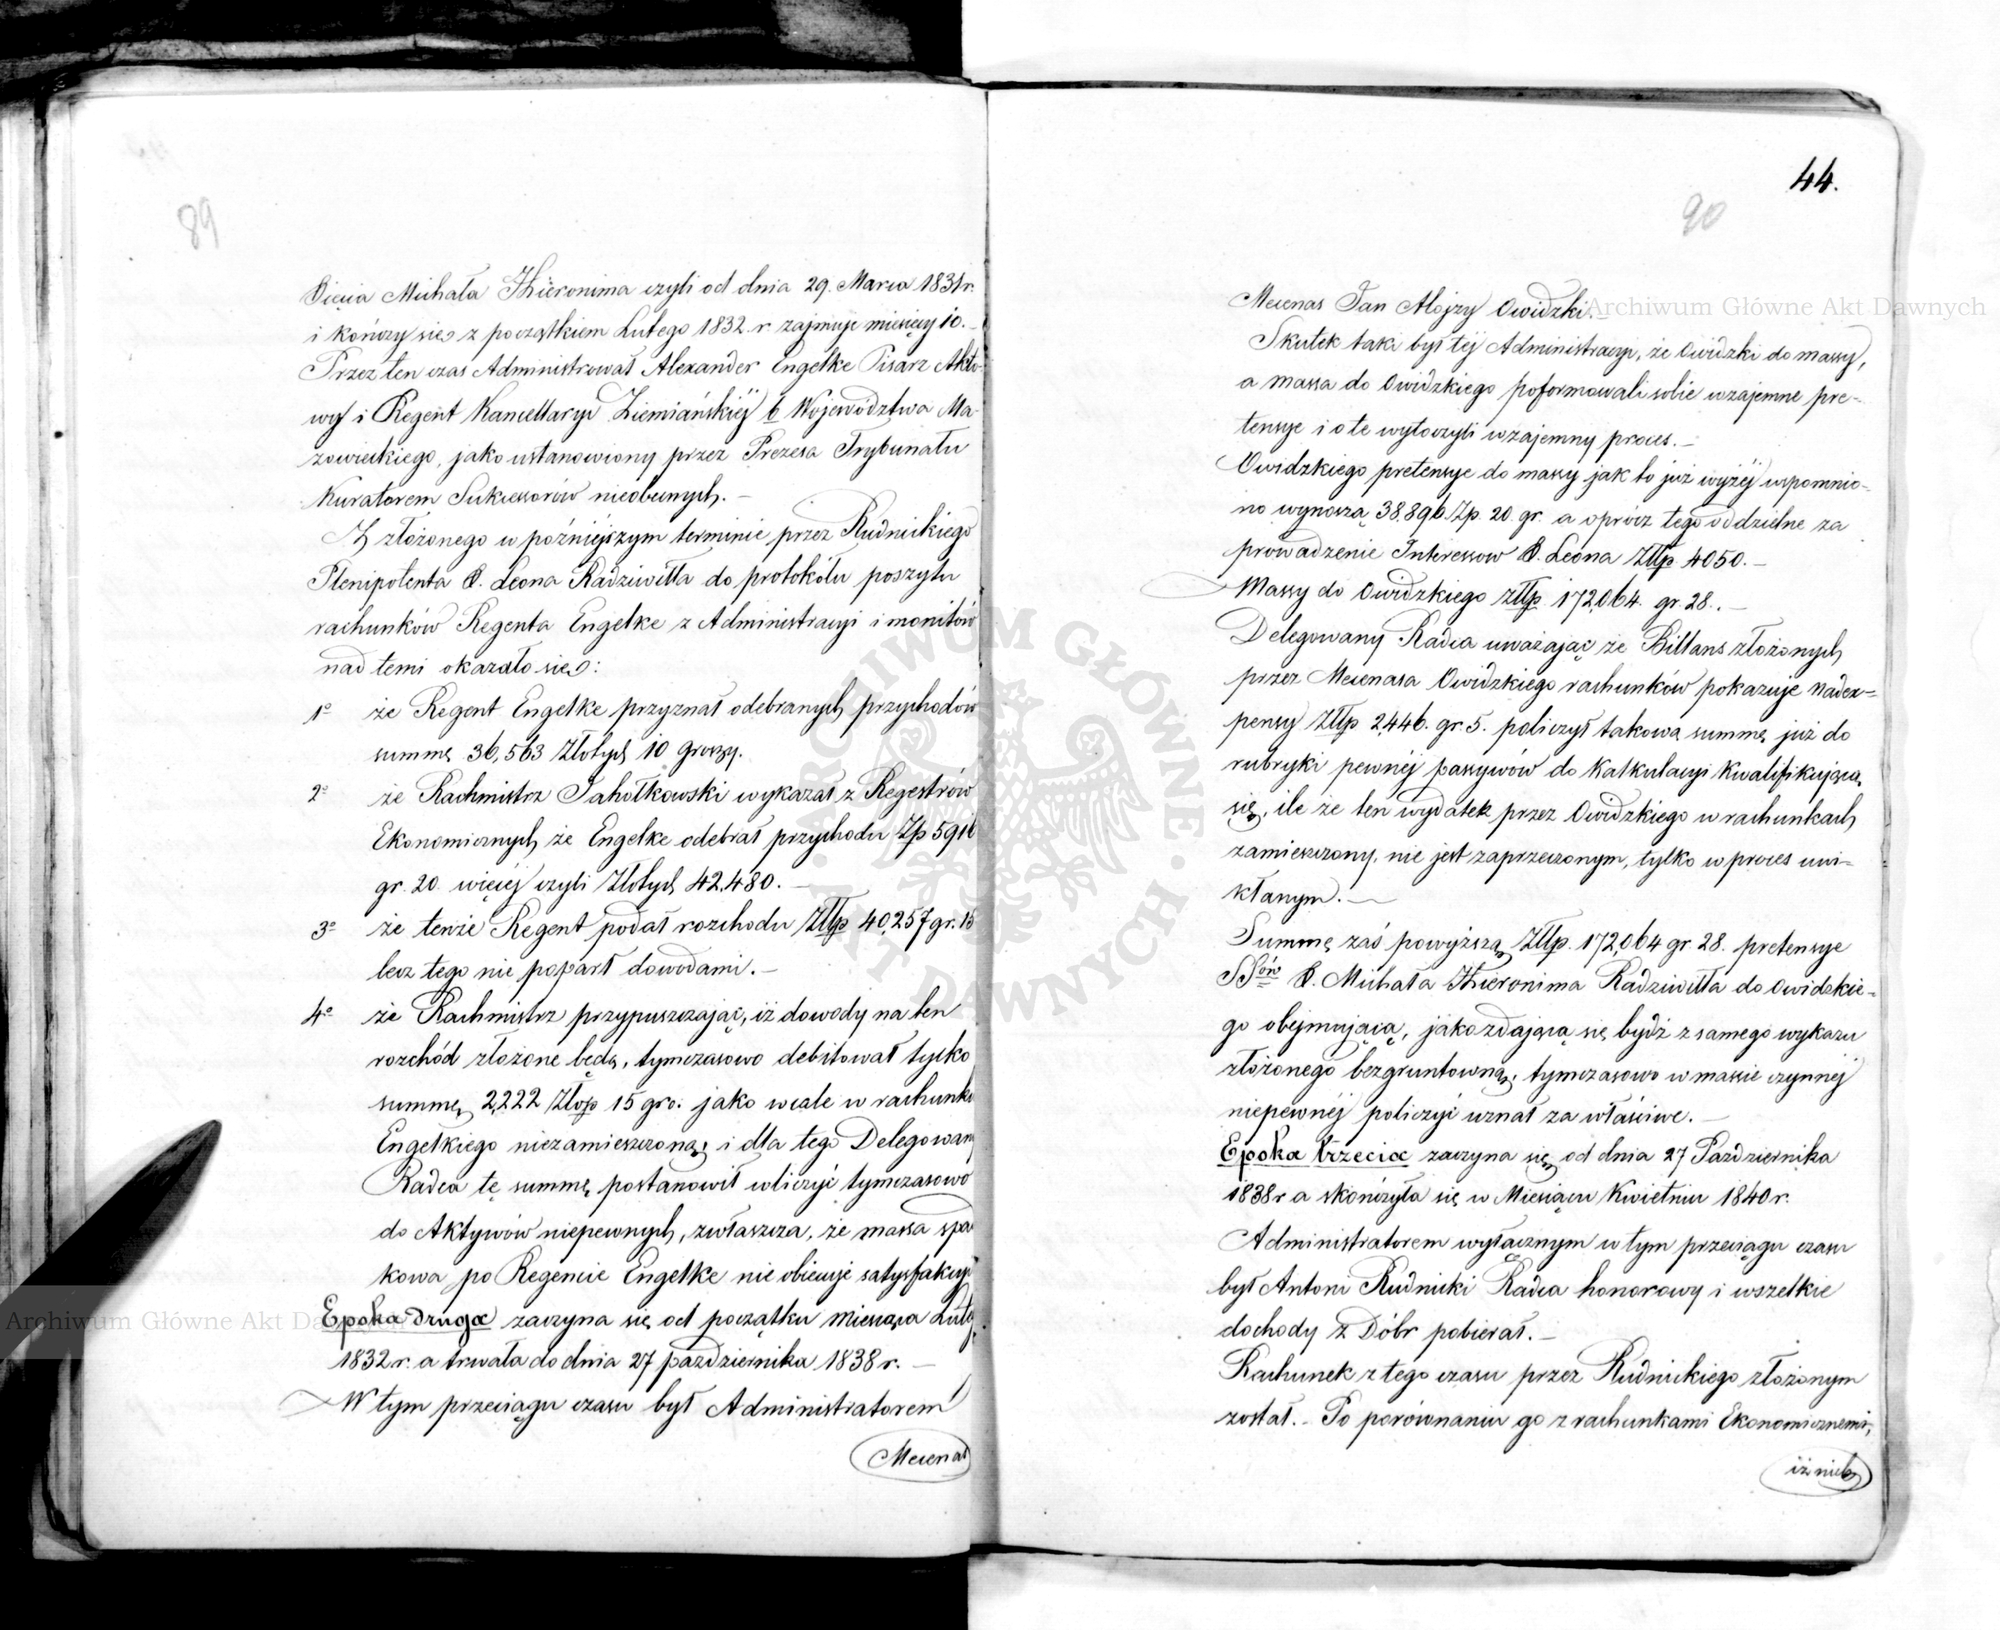 89
Xięcia Michała Hieronima czyli od dnia 29. Marca 1831 r.
i kończy się z początkiem Lutego 1832 r zajmuje miesięcy 10.-
Przez ten czas Administrował Alexander Engelke Pisarz Akto-
wy i Regent Kancellaryi Ziemiańskiéj b. Województwa Ma-
zowieckiego, jako ustanowiony przez Prezesa Trybunału
Kuratorem Sukcessorów nieobecnych.-
Z złożonego w poźniéjszym terminie przez Rudnickiego
Plenipotenta X. Leona Radziwiłła do protokółu poszytu
rachunków Regenta Engelke z Administracyi i monitów
nad temi okazało się:
1º że Regent Engelke przyznał odebranych przychodów
summę 36,563 Złotych 10 groszy.
2º że Rachmistrz Jahołkowski wykazał z Regestrów
Ekonomicznych że Engelke odebrał przychodu Zp 5916
gr. 20. więcéj czyli Złotych 42,480.-
3º że tenże Regent podał rozchodu Złlp 40,257 gr. 15
lecz tego nie poparł dowodami.-
4º że Rachmistrz przypuszczając, iż dowody na ten
rozchód złożone będą, tymczasowo debitował tylko
summę 2,222 Złop 15 gro. jako wcale w rachunku
Engelkiego niezamieszczoną; i dla tego Delegowany
Radca tę summę postanowił wliczyć tymczasowo
do Aktywów niepewnych, zwłaszcza, że massa spad
kowa po Regencie Engelke nie obiecuje satysfakcyi.
Epoka druga zaczyna się od początku miesiąca Lutego
1832 r. a trwała do dnia 27 października 1838 r.-
W tym przeciągu czasu był Administratorem
Mecenas
44.
90
Mecenas Jan Alojzy Owidzki.-
Skutek taki był téj Administracyi, że Owidzki do massy,
a massa do Owidzkiego poformowali sobie wzajemne pre-
tensye i o te wytoczyli wzajemny proces.-
Owidzkiego pretensye do massy jak to już wyżéj wspomnio-
no wynoszą 38,896 Zp. 20. gr. a oprócz tego oddzielne za
prowadzenie Interessow X. Leona Złlp 4050.-
Massy do Owidzkiego złlp. 172,064. gr. 28..-
Delegowany Radca uważając że Billans złożonych
przez Mecenasa Owidzkiego rachunków pokazuje nadex=
pensy Złlp 2,446. gr. 5. policzył takową summę już do
rubryki pewnéj passywów do Kalkulacyi kwalifikującą
się, ile że ten wydatek przez Owidzkiego w rachunkach
zamieszczony, nie jest zaprzeczonym, tylko w proces uwi=
kłanym.-
Summę zaś powyższą Złlp. 172,064 gr. 28. pretensye
SSów X. Michała Hieronima Radziwiłła do Owidzkie=
go obejmującą, jako zdającą się bydź z samego wykazu
złożonego bezgruntowną, tymczasowo w massie czynnéj
niepewnéj policzyć uznał za właściwe.-
Epoka trzecia zaczyna się od dnia 27 Października
1838 r a skończyła się w Miesiącu Kwietniu 1840 r.
Administratorem wyłącznym w tym przeciągu czasu
był Antoni Rudnicki Radca honorowy i wszelkie
dochody z Dóbr pobierał.-
Rachunek z tego czasu przez Rudnickiego złożonym
został.- Po porównaniu go z rachunkami Ekonomicznemi,
iż nieb
ARCHIWUM GŁÓWNE AKT DAWNYCH
Archiwum Główne Akt Dawnych
Archiwum Główne Akt Dawnych